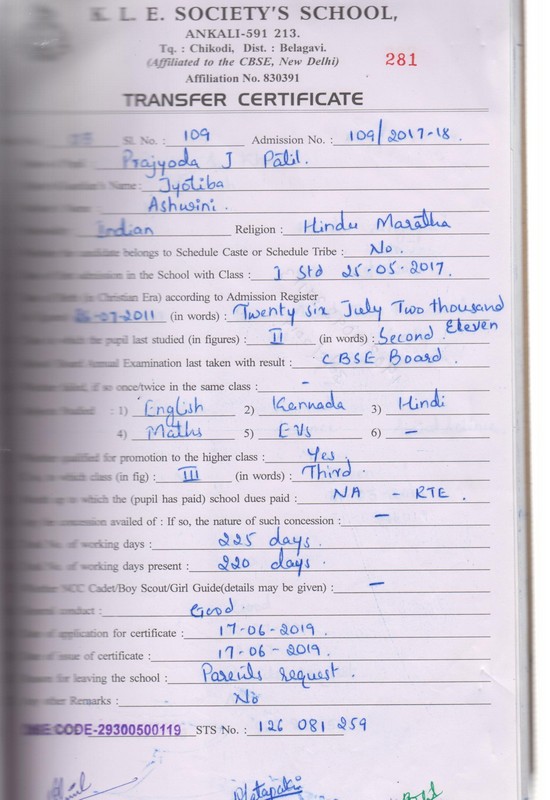 K. L. E. SOCIETY'S SCHOOL,
ANKALI-591 213.
Tq. : Chikodi, Dist. : Belagavi.
(Affiliated to the CBSE, New Delhi)
281
Affiliation No. 830391
TRANSFER CERTIFICATE
Sl. No. : 109 Admission No. : 109/2017-18.
Prajyoda J Patil.
Name : Jyotiba
Ashwini.
Indian Religion : Hindu Maratha
candidate belongs to Schedule Caste or Schedule Tribe : No.
admission in the School with Class : I Std 25-05-2017.
(in Christian Era) according to Admission Register
26-07-2011 (in words) : Twenty six July Two thousand Eleven
which the pupil last studied (in figures) : II (in words) : Second
Annual Examination last taken with result : CBSE Board.
failed, if so once/twice in the same class : -
Studied : 1) English 2) Kannada 3) Hindi
4) Maths 5) EVs 6) -
qualified for promotion to the higher class : Yes.
which class (in fig) : III (in words) : Third.
up to which the (pupil has paid) school dues paid : NA - RTE.
concession availed of : If so, the nature of such concession : -
No. of working days : 225 days.
No. of working days present : 220 days.
NCC Cadet/Boy Scout/Girl Guide(details may be given) : -
General conduct : Good.
of application for certificate : 17-06-2019.
of issue of certificate : 17-06-2019.
for leaving the school : Parents request.
other Remarks : No
CODE-29300500119 STS No. : 126 081 259